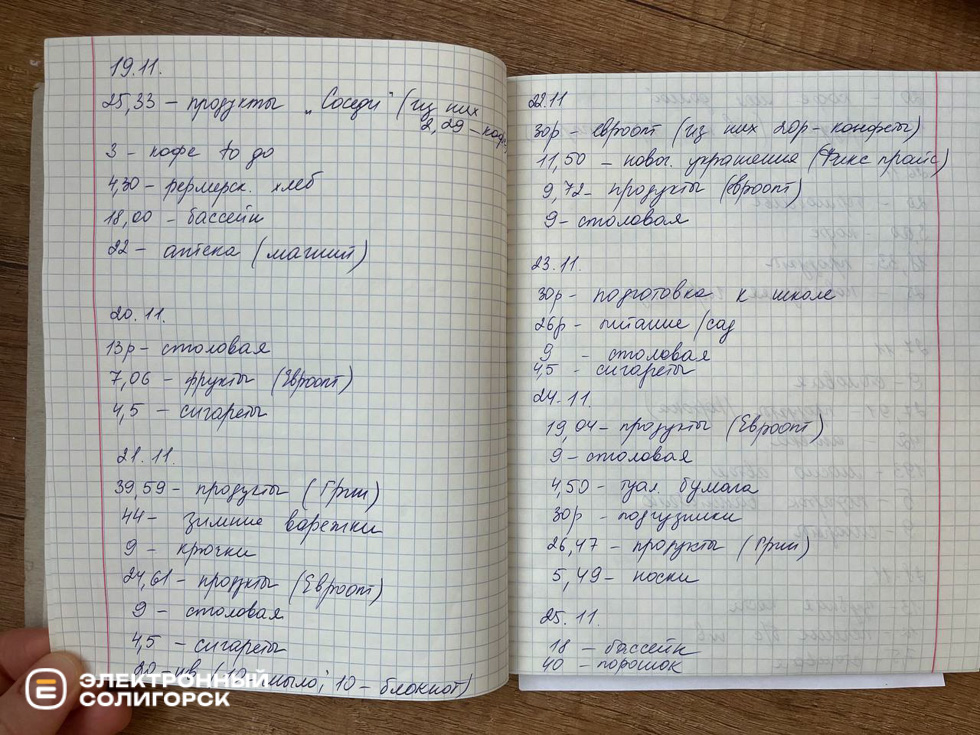 19.11.
25,33 – продукты „Соседи" (из них
2,29 – кофе)
3 – кофе to до
4,30 – фермерск. хлеб
18,00 – бассейн
22 – аптека (магнит)
20.11.
13р – столовая
7,06 – фрукты (Евроопт)
4,5 – сигареты
21.11.
39,59 – продукты (Грин)
44 – зимние варежки
9 – крючки
24,61 – продукты (Евроопт)
9 – столовая
4,5 – сигареты
20 – (10 – мыло; 10 – блокнот)
22.11
30р – евроопт (из них 20р – конфеты)
11,50 – новог. украшения (Фикс прайс)
9,72 – продукты (евроопт)
9 – столовая
23.11.
30р – подготовка к школе
26р – питание /сад
9 – столовая
4,5 – сигареты
24.11.
19,04 – продукты (Евроопт)
9 – столовая
4,50 – туал. бумага
30р – подгузники
26,47 – продукты (Грин)
5,49 – носки
25.11.
18 – бассейн
40 – порошок
ЭЛЕКТРОННЫЙ
СОЛИГОРСК